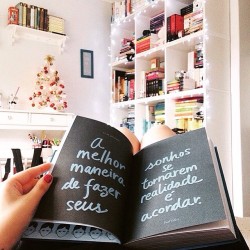 a
melhor
maneira
de fazer
seus
sonhos
se
tornarem
realidade
é
acordar.